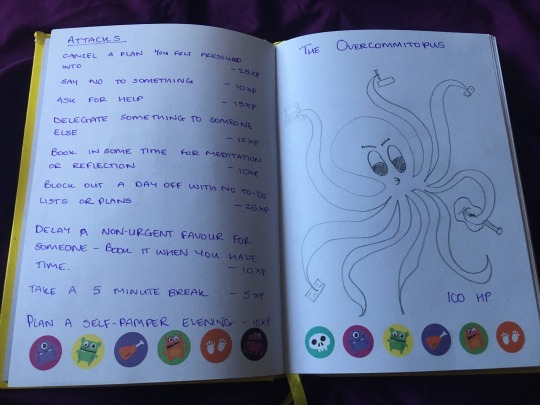 ATTACKS
CANCEL A PLAN YOU FELT PRESSURED
INTO
- 25XP
SAY NO TO SOMETHING
- 10XP
ASK FOR HELP
- 15XP
DELEGATE SOMETHING TO SOMEONE
ELSE
- 15XP
BOOK IN SOME TIME FOR MEDITATION
OR REFLECTION
- 10XP
BLOCK OUT A DAY OFF WITH NO TO-DO
LISTS OR PLANS
- 25XP
DELAY A NON-URGENT FAVOUR FOR
SOMEONE - BOOK IT WHEN YOU HAVE
TIME.
- 10XP
TAKE A 5 MINUTE BREAK - 5XP
PLAN A SELF-PAMPER EVENING - 10XP
THE OVERCOMMITOPUS
100 HP